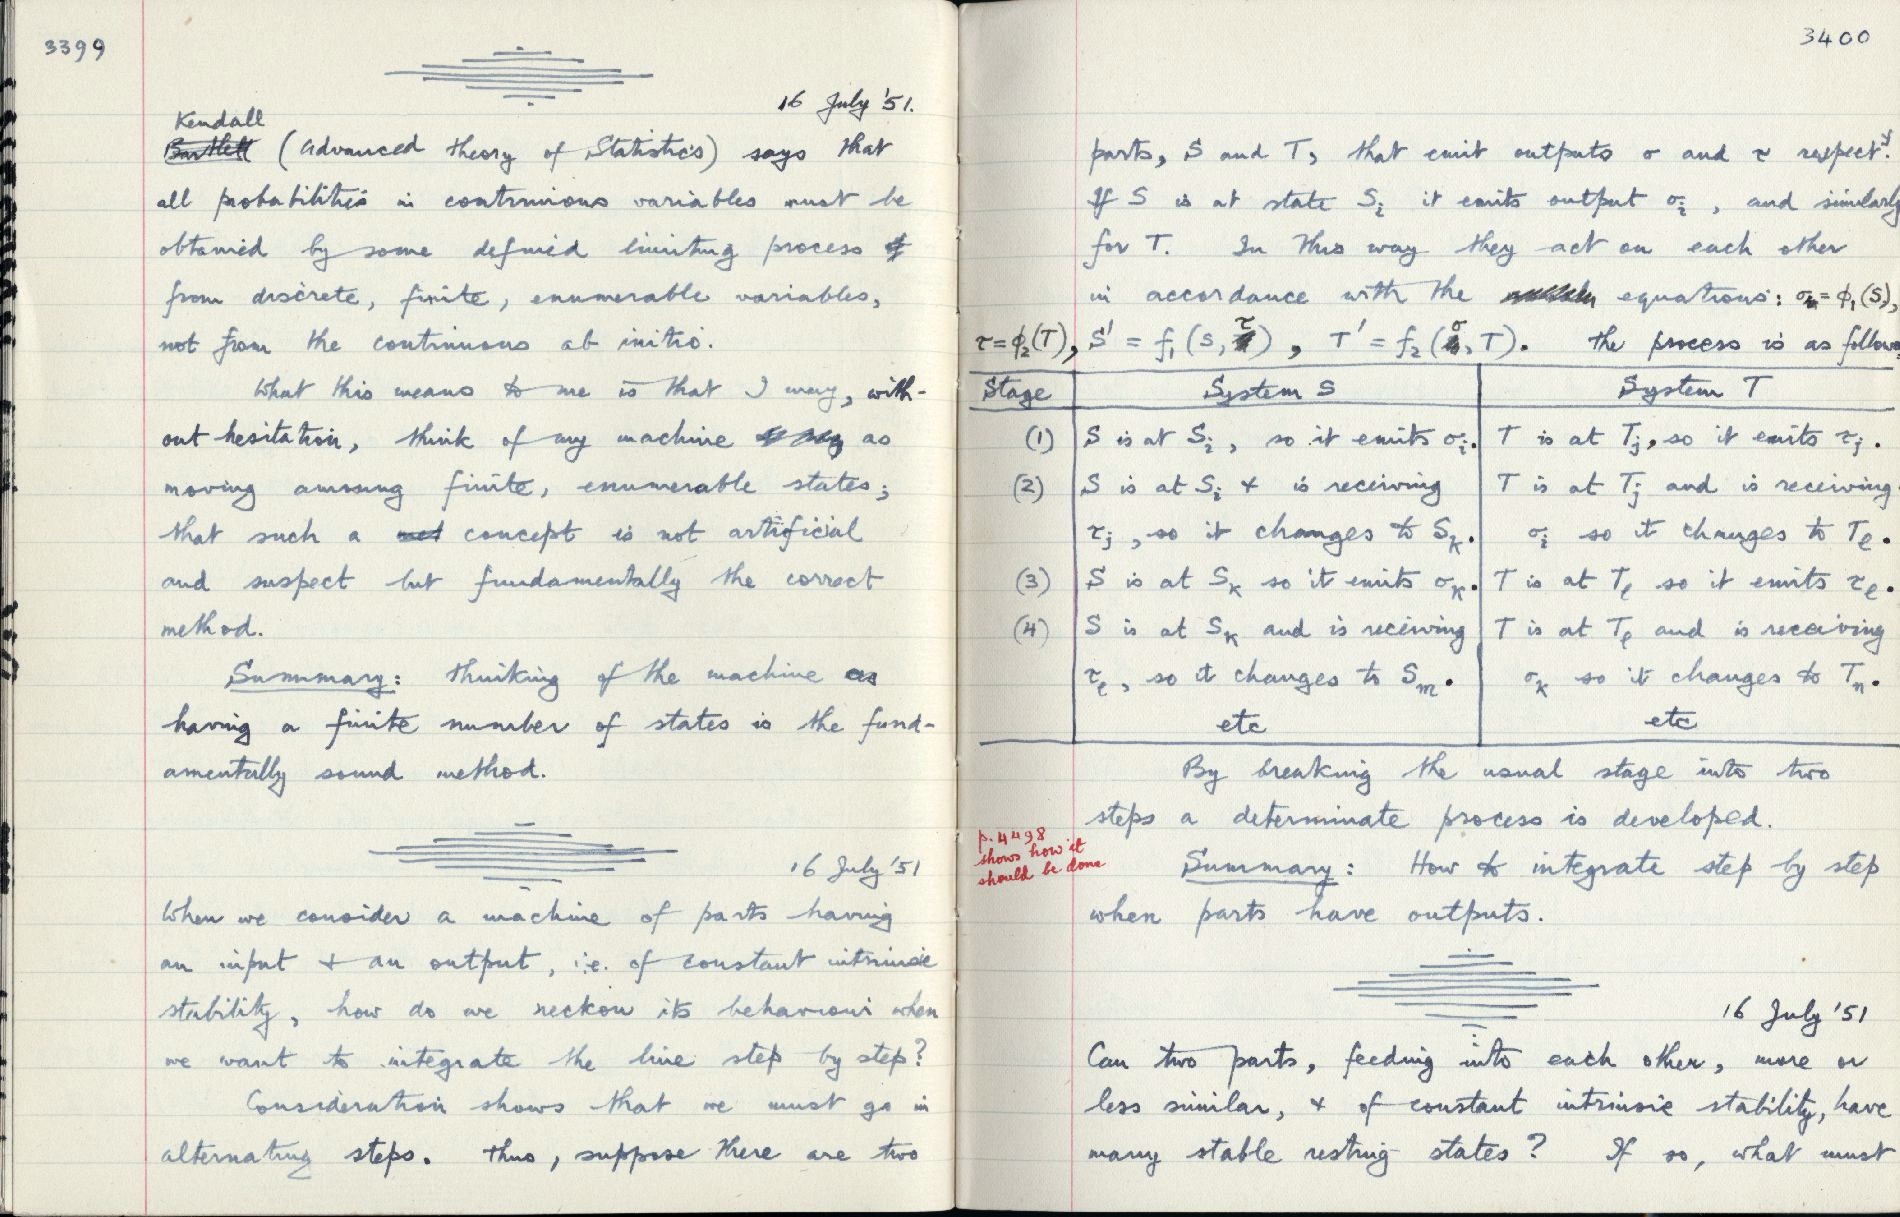 3399
16 July '51.
Kendall
Bartlett (Advanced theory of Statistics) says that
all probabilities in continuous variables must be
obtained by some defined limiting process of
from discrete, finite, enumerable variables,
not from the continuous ab initio.
What this means to me is that I may, with-
out hesitation, think of my machine as
moving among finite, enumerable states;
that such a concept is not artificial
and suspect but fundamentally the correct
method.
Summary: Thinking of the machine as
having a finite number of states is the fund-
amentally sound method.
16 July '51
When we consider a machine of parts having
an input & an output, i.e. of constant intrinsic
stability, how do we reckon its behaviour when
we want to integrate the line step by step?
Consideration shows that we must go in
alternating steps. Thus, suppose there are two
3400
parts, S and T, that emit outputs σ and τ respectʸ.
If S is at state Si it emits output σi, and similarly
for T. In this way they act on each other
in accordance with the equations: σ = ϕ₁(S),
τ = ϕ₂(T), S' = f₁(S, τ), T' = f₂(σ, T). The process is as follows
Stage System S System T
(1) S is at Si, so it emits σi. T is at Tj, so it emits τj.
(2) S is at Si & is receiving T is at Tj and is receiving
τj, so it changes to Sk. σi so it changes to Tl.
(3) S is at Sk so it emits σk. T is at Tl so it emits τl.
(4) S is at Sk and is receiving T is at Tl and is receiving
τl, so it changes to Sm. σk so it changes to Tn.
etc etc
By breaking the usual stage into two
steps a determinate process is developed.
p. 4498
shows how it
should be done
Summary: How to integrate step by step
when parts have outputs.
16 July '51
Can two parts, feeding into each other, more or
less similar, & of constant intrinsic stability, have
many stable resting states? If so, what must